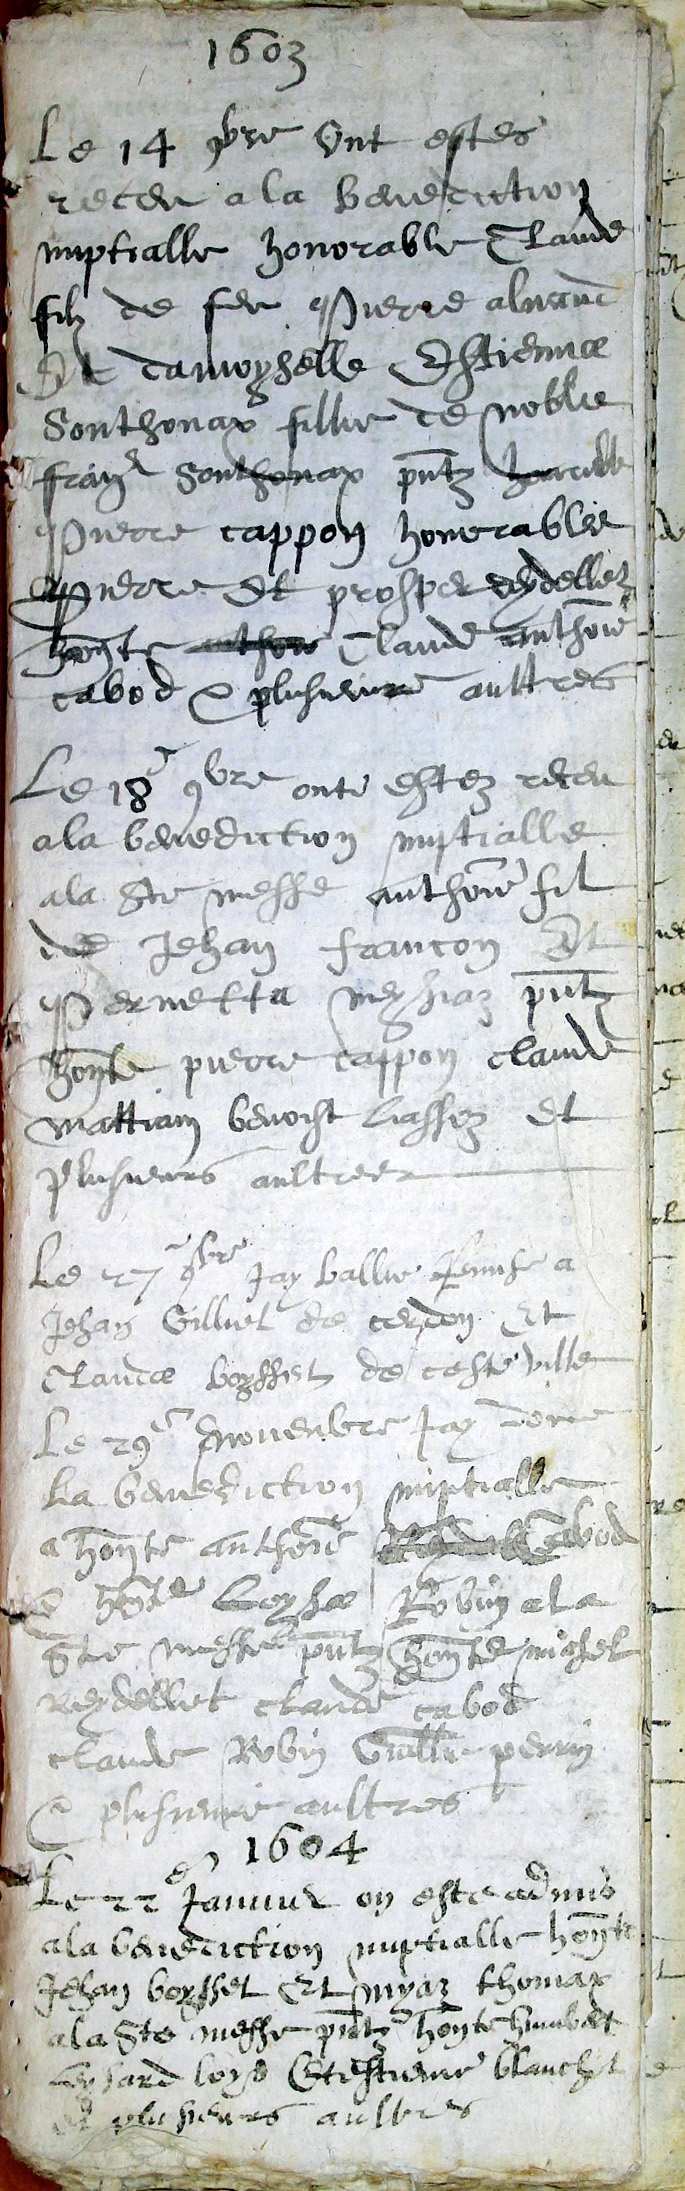 1603
Le 14 9bre Ont estes
receu a la benediction
nuptialle honorable Claude
filz de feu Pierre
Et damoyselle Estienna
Sonthonax fillie de noble
franç Sonthonax pntz
Pierre cappon honorable
Pierre Et prosper reydellet
honte Claude anthoine
cabod & plusieurs aultres
Le 18e 9bre onte estez receu
a la benediction nuptialle
a la Ste messe anthoine fil
de Jehan francon Et
Pernetta pntz
honte pierre cappon claude
mattian benoist Et
plusieurs aultres
Le 27e 9bre Jay ballie a
Jehan Gilliet de cerdon Et
Clauda boysset de ceste ville
Le 29e novenbre Jay donne
La benediction nuptialle
a honte anthoine Cabod
& honte Loysa Robin a la
Ste messe pntz honte michel
Reydellet claude cabod
claude Robin Guille perrin
& plusieurs aultres
1604
Le 22e Janvier on este admis
a la benediction nuptialle honte
Jehan boysset Et myaz thomax
a la Ste messe pntz honte humbert
loys Et estienne blanchet
Et plusieurs aultres